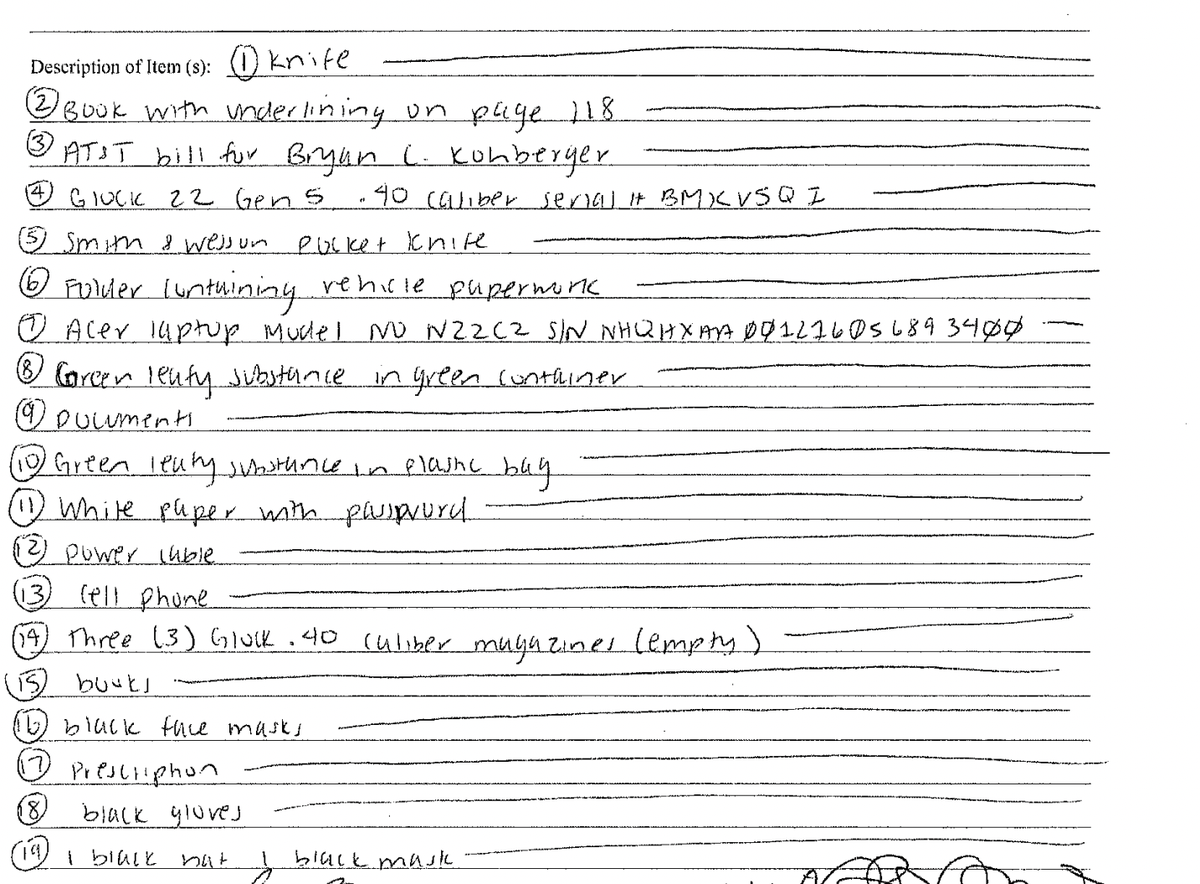 Description of Item (s): ① Knife
② Book with underlining on page 118
③ AT&T bill for Bryan C. Kohberger
④ Glock 22 Gen 5 .40 caliber serial # BMXV5QI
⑤ Smith & Wesson pocket knife
⑥ Folder containing vehicle paperwork
⑦ Acer laptop Model NO N22C2 S/N NHQHXAA00121605689 3400
⑧ Green leafy substance in green container
⑨ Documents
⑩ Green leafy substance in plastic bag
⑪ White paper with password
⑫ power cable
⑬ cell phone
⑭ Three (3) Glock .40 caliber magazines (empty)
⑮ books
⑯ black face masks
⑰ Prescription
⑱ black gloves
⑲ 1 black hat 1 black mask